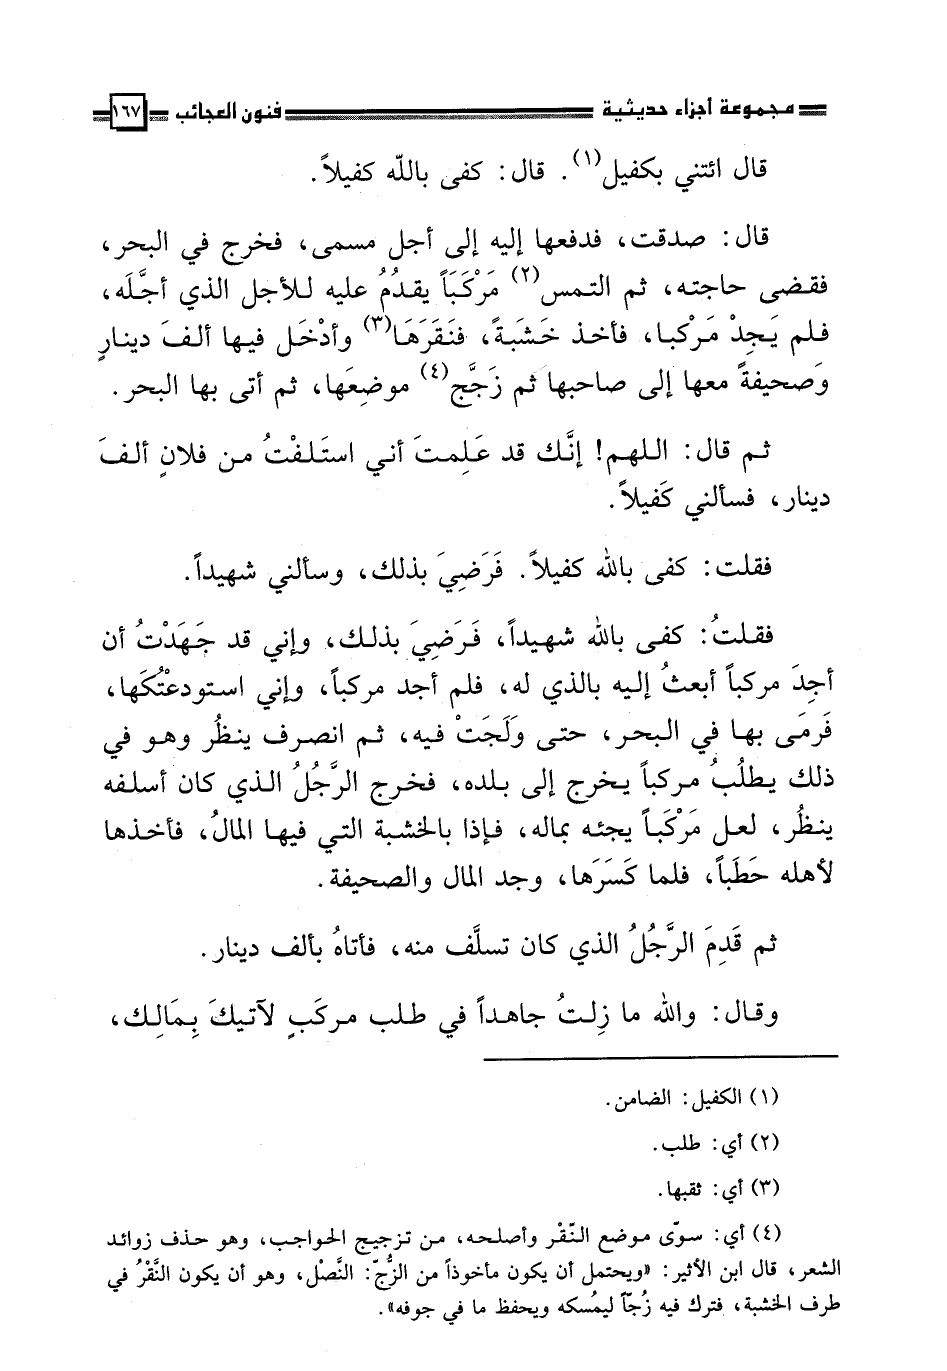 مجموعة أجزاء حديثية فنون العجائب ١٦٧
قال ائتني بكفيل(١). قال: كفى باللّه كفيلاً.
قال: صدقت، فدفعها إليه إلى أجل مسمى، فخرج في البحر،
فقضى حاجته، ثم التمس(٢) مَرْكَبَاً يقدُمُ عليه للأجل الذي أجَّلَه،
فلم يَجِدْ مَرْكبا، فأخذ خَشَبَةً، فنَقَرَهَا(٣) وأدْخَل فيها ألفَ دينارٍ
وَصحيفةً معها إلى صاحبها ثم زَجَّج(٤) موضِعَها، ثم أتى بها البحر.
ثم قال: اللهم! إنَّك قد عَلِمتَ أني استَلفْتُ من فلانٍ ألفَ
دينار، فسألني كَفيلاً.
فقلت: كفى بالله كفيلاً. فَرَضِيَ بذلك، وسألني شهيداً.
فقلتُ: كفى بالله شهيداً، فَرَضِيَ بذلك، وإني قد جَهَدْتُ أن
أجِدَ مركباً أبعثُ إليه بالذي له، فلم أجد مركباً، وإني استودعْتُكَها،
فَرمَى بها في البحر، حتى وَلَجَتْ فيه، ثم انصرف ينظُر وهو في
ذلك يطلُبُ مركباً يخرج إلى بلده، فخرج الرَّجُلُ الذي كان أسلفه
ينظُر، لعل مَرْكَبَاً يجئه بماله، فإذا بالخشبة التي فيها المالُ، فأخذها
لأهله حَطَباً، فلما كَسَرَها، وجد المال والصحيفة.
ثم قَدِمَ الرَّجُلُ الذي كان تسلَّف منه، فأتاهُ بألف دينار.
وقال: والله ما زِلتُ جاهداً في طلب مركَبٍ لآتيكَ بِمَالِك،
(١) الكفيل: الضامن.
(٢) أي: طلب.
(٣) أي: ثقبها.
(٤) أي: سوّى موضع النّقْر وأصلحه، من تزجيج الحواجب، وهو حذف زوائد
الشعر، قال ابن الأثير: «ويحتمل أن يكون مأخوذاً من الزُّجّ: النَّصْل، وهو أن يكون النَّقْرُ في
طرف الخشبة، فترك فيه زُجّاً ليمُسكه ويحفظ ما في جوفه».